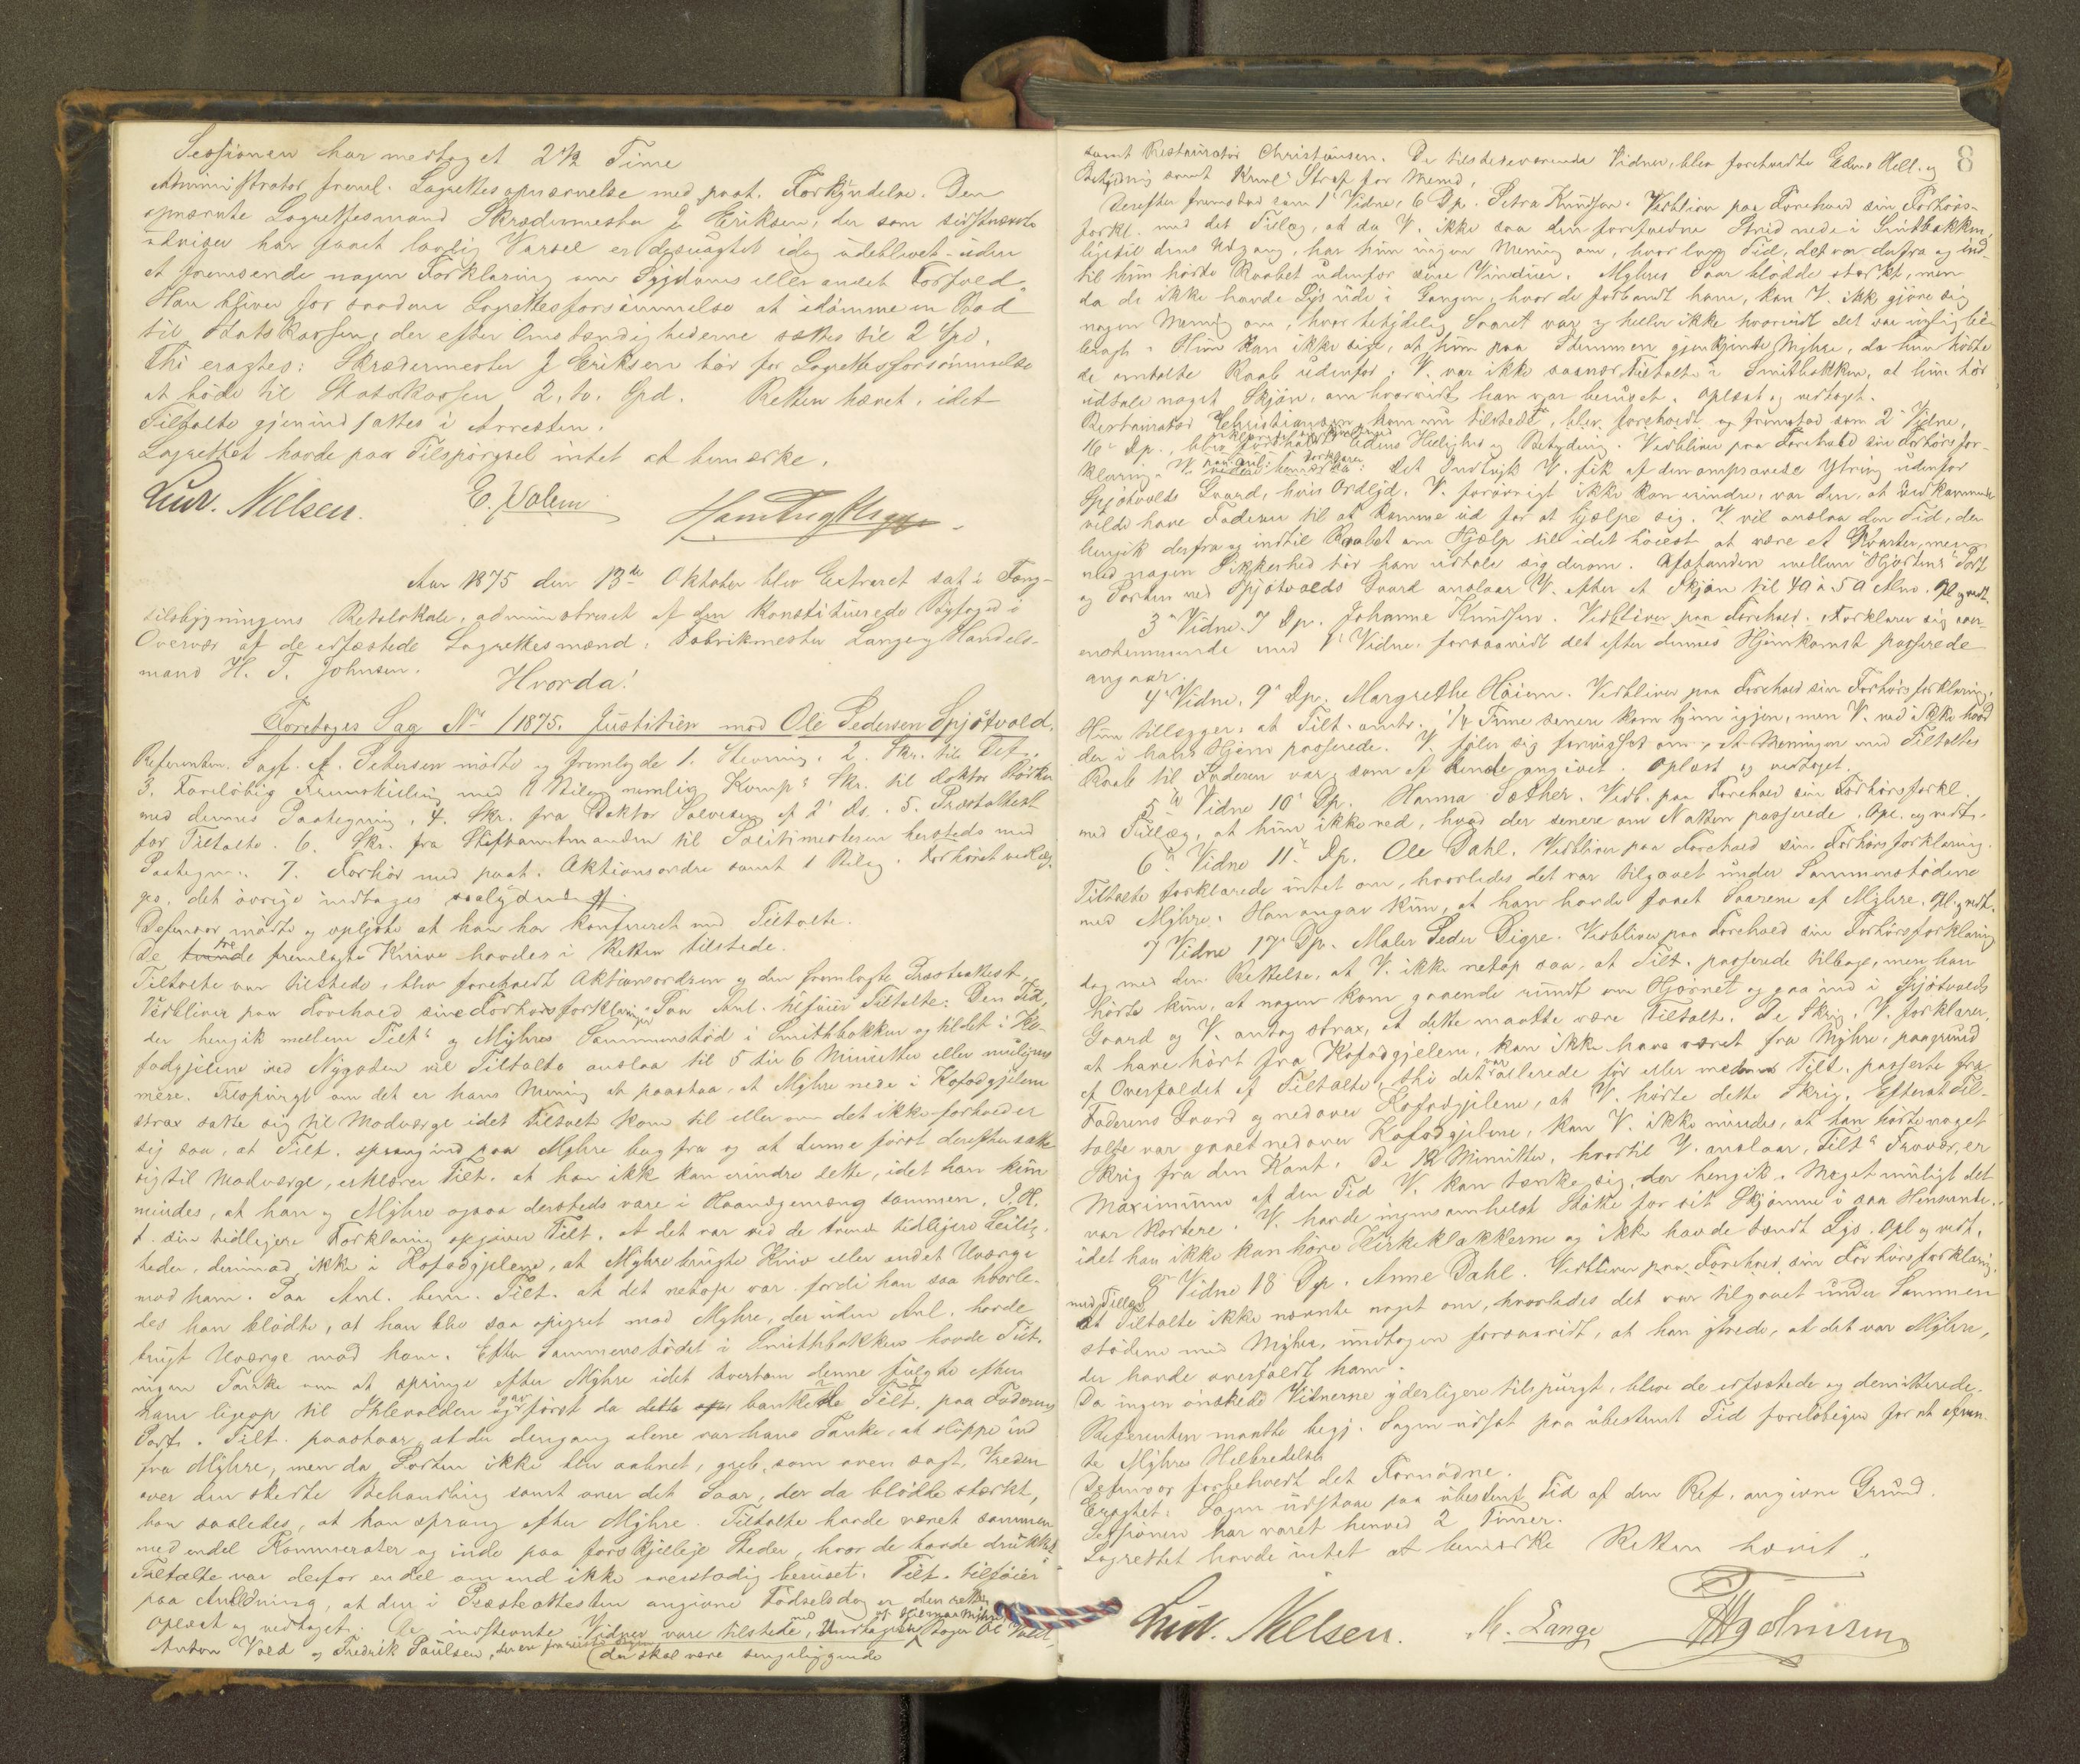 Sessionen har medtaget 2 1/2 Time
Administrator freml. Lagrettesopnævnelse med paat. Forkyndelse. Den
opnævnte Lagrettesmand Skrædermester J Eriksen, der som sidstnævnte
udviser har faaet lovlig Varsel er desuagtet idag udeblevet uden
at fremsende nogen Forklaring om Sygdoms eller andet Forfald.
Han bliver for saadan Lagrettesforsømmelse at idømme en Bod
til Statskassen, der efter Omstændighederne sættes til 2 Spd.
Thi eragtes: Skrædermester J Eriksen bør for Lagrettesforsømmelse
at bøde til Statskassen 2, to, Spd. Retten hævet, idet
Tiltalte gjenindsattes i Arresten.
Lagrettet havde paa Tilspørgsel intet at bemærke.
Ludv. Nielsen. E. Solem
Aar 1875 den 13de Oktober blev Extraret sat i Fæng-
selsbygningens Retslokale, administreret af den konstituerede Byfoged i
Overvær af de edfæstede Lagrettesmænd: Fabrikmester Lange og Handels-
mand H. T. Johnsen. Hvorda!
Foretoges Sag No 1/1875. Justitien mod Ole Pedersen Spjøtvold.
Referenten. Sagf. A. Petersen mødte og fremlagde 1. Stevning. 2. Skr. til Def.
3. Foreløbig Fremstilling med 1 Bilag nemlig Komp's Skr. til Doktor
med dennes Paategning. 4. Skr. fra Doktor Solvesen af 2' ds. 5. Præsteattest
for Tiltalte. 6. Skr. fra Stiftamtmanden til Politimesteren hersteds med
Paategn. 7. Forhør med paat. Aktionsordre samt 1 Bilag. Forhøret vedlæg-
ges, det øvrige indtages saalydende #
Defensor mødte og oplyste at han har konfereret med Tiltalte.
De tre fremlagte Knive havdes i Retten tilstede.
Tiltalte var tilstede, blev foreholdt Aktionsordren og den fremlagte Præsteattest,
Vedbliver paa Forehold sine Forhørsforklaringer. Paa Anl. tilføier Tiltalte: Den Tid,
der hengik mellem Tilt's og Myhres Sammenstød i Smithbakken og til det i Ko-
fodgjelene ved Nygaten vil Tiltalte anslaa til 5 til 6 Minutter eller muligens
mere. Tilspurgt om det er hans Mening at paastaa, at Myhre nede i Kofodgjelene
strax satte sig til Modværge idet Tiltalte kom til eller om det ikke forholder
sig saa, at Tilt. sprang ind paa Myhre bag fra og at denne først derefter satte
sig til Modværge, erklærer Tilt. at han ikk kan erindre dette, idet han kun
mindes, at han og Myhre ogsaa dersteds vare i Haandgemæng sammen. I H.
t. sin tidligere Forklaring opgiver Tilt. at det var ved de tvende tidligere Leilig-
heder, derimod ikke i Kofodgjelene, at Myhre brugte Kniv eller andet Uværge
mod ham. Paa Anl. bem. Tilt. at det netop var fordi han saa hvorle-
des han blødte, at han blev saa opirret mod Myhre, der uden Anl. havde
brugt Uværge mod ham. Efter Sammenstødet i Smithbakken havde Tilt.
ingen Tanke om at springe efter Myhre idet tvertom denne fulgte efter
ham ligeop til Ihlevolden og først da bankede Tilt. paa Faderens
Port. Tilt. paastaar, at der dengang alene var hans Tanke, at slippe ind
fra Myhre, men da Porten ikke blev aabnet, greb, som oven sagt, Vreden
over den skedte Behandling samt over det Saar, der da blødte stærkt,
ham saaledes, at han sprang efter Myhre. Tiltalte havde været sammen
med endel Kammerater og inde paa forskjellige Steder, hvor de havde drukket
Tiltalte var derfor endel om end ikke overstadig beruset. Tilt. tilføier
paa Anledning, at den i Præsteattesten angivne Fødselsdag er den rette
Oplæst og vedtaget. De indstevnte Vidner vare tilstede, undtagen
Anton Vold og Fredrik Paulsen, (der skal være sengeliggende
8
samt Restauratør Christiansen. De tilstedeværende Vidner, blev foreholdte Edens Hell. og
Betydning samt Kriml' Straf for Mened.
Derefter fremstod som 1' Vidne, 6 Dp. Petra Knudsen. Vedbliver paa Forehold sin Forhørs-
forkl. med det Tillæg, at da V. ikke saa den forefaldne Strid nede i Smithbakken,
ligetil dens Udgang, har hun ingen Mening om, hvor lang Tid, det var derfra og ind-
til hun hørte Raabet udenfor sine Vinduer. Myhres Saar blødde stærkt, men
da de ikke havde Lys ude i Gangen, hvor de forbandt ham, kan V. ikk gjøre sig
nogen Mening om, hvor betydelig Saaret var og heller ikke hvorvidt det var nylig bi-
bragt. Hun kan ikke sige, at hun paa Stemmen gjenkjendte Myhre, da hun hørte
de omtalte Raab udenfor. V. var ikke saanær Tiltalte i Smithbakken, at hun tør
udtale noget Skjøn, om hvorvidt han var beruset. Oplæst og vedtaget.
Restauratør Christiansen, kom nu tilstede, blev foreholdt og fremstod som 2' Vidne,
16' Dp., blev foreholdt Edens Hellighed og Betydning. Vedbliver paa Forehold sin Forhørsfor-
klaring. V. paa Anl: forklarer: Det Indtryk V. fik af den ompr. Ytring udenfor
Spjøtvolds Gaard, hvis Ordlyd, V. forøvrigt ikke kan erindre, var den, at vedkommende
vilde have Faderen til at komme ud for at hjælpe sig. V. vil anslaa den Tid, der
hengik derfra og indtil Raabet om Hjælp til i det høiest at være et Kvarter, men
med nogen Sikkerhed tør han udtale sig derom. Afstanden mellem "Hjørtens" Port
og Porten ved Spjøtvolds Gaard anslaar V. efter et Skjøn til 40 à 50 Alen. Opl. og vedt.
3' Vidne. 7 Dp. Johanne Knudsen. Vedbliver paa Forehold. Forklarer sig over-
ensstemmende med 1' Vidne, forsaavidt det efter dennes Hjemkomst passerede
angaar.
4' Vidne, 9' Dp. Margrethe Høiem. Vedbliver paa Forehold sin Forhørsforklaring.
Hun tillægger, at Tilt. omtr. 1/4 Time senere kom hjem igjen, men V. ved ikke hvad
der i hans Hjem passerede. V. føler sig forvisset om, at Meningen med Tiltaltes
Raab til Faderen var, som af hende angivet. Oplæst og vedtaget.
5' Vidne 10' Dp. Hanna Sæther. Vedb. paa Forehold sin Forhørsforkl.
med Tillæg, at hun ikke ved, hvad der senere om Natten passerede. Opl. og vedt.
6' Vidne 11' Dp. Ole Dahl. Vedbliver paa Forehold sin Forhørsforklaring.
Tiltalte forklarede intet om, hvorledes det var tilgaaet under Sammenstødene
med Myhre. Han angav kun, at han havde faaet Saarene af Myhre. Opl. og vedt.
7 Vidne 17' Dp. Maler Peder Digre. Vedbliver paa Forehold sin Forhørsforklaring
dog med den Rettelse, at V. ikke netop saa, at Tilt. passerede tilbage, men han
hørte kun, at nogen kom gaaende rundt om Hjørnet og gaa ind i Spjøtvolds
Gaard og V. antog strax, at dette maatte være Tiltalte. De Skrig, V. forklarer,
at have hørt fra Kofodgjelene, kan ikke have været fra Myhre, paagrund
af Overfaldet af Tiltalte, thi det var allerede før eller medens Tilt. passerte fra
Faderens Gaard og nedover Kofodgjelene, at V. hørte dette Skrig. Efterat Til-
talte var gaaet nedover Kofodgjelene, kan V. ikke mindes, at han hørte noget
Skrig fra den Kant. De 12 Minutter, hvortil V. anslaar, Tilt's Fravær, er
Maximum af den Tid V. kan tænke sig, der hengik. Meget muligt det
var kortere. V. havde ingensomhelst Støtte for sit Skjønne i saa Henseende,
idet han ikke kan høre Kirkeklokkerne og ikke havde tændt Lys. Opl og vedt.
8' Vidne 18' Dp. Anne Dahl. Vedbliver paa Forehold sin Forhørsforklaring.
med Tillæg
at Tiltalte ikke nævnte noget om, hvorledes det var tilgaaet under Sammen
stødene med Myhre, undtagen forsaavidt, at han ytrede, at det var Myhre,
der havde overfaldt ham.
Da ingen ønskede Vidnerne yderligere tilspurgt, bleve de edfæstede og demitterede.
Referenten maatte begj. Sagen udsat paa ubestemt Tid foreløbigen for at afven-
te Myhres Helbredelse
Defensor forbeholdt det Fornødne.
Eragtet: Sagen udstaar paa ubestemt Tid af den Ref. angivne Grund.
Sessionen har varet henved 2 Timer.
Lagrettet havde intet at bemærke Retten hævet.
Ludv. Nielsen. M. Lange HTJohnsen